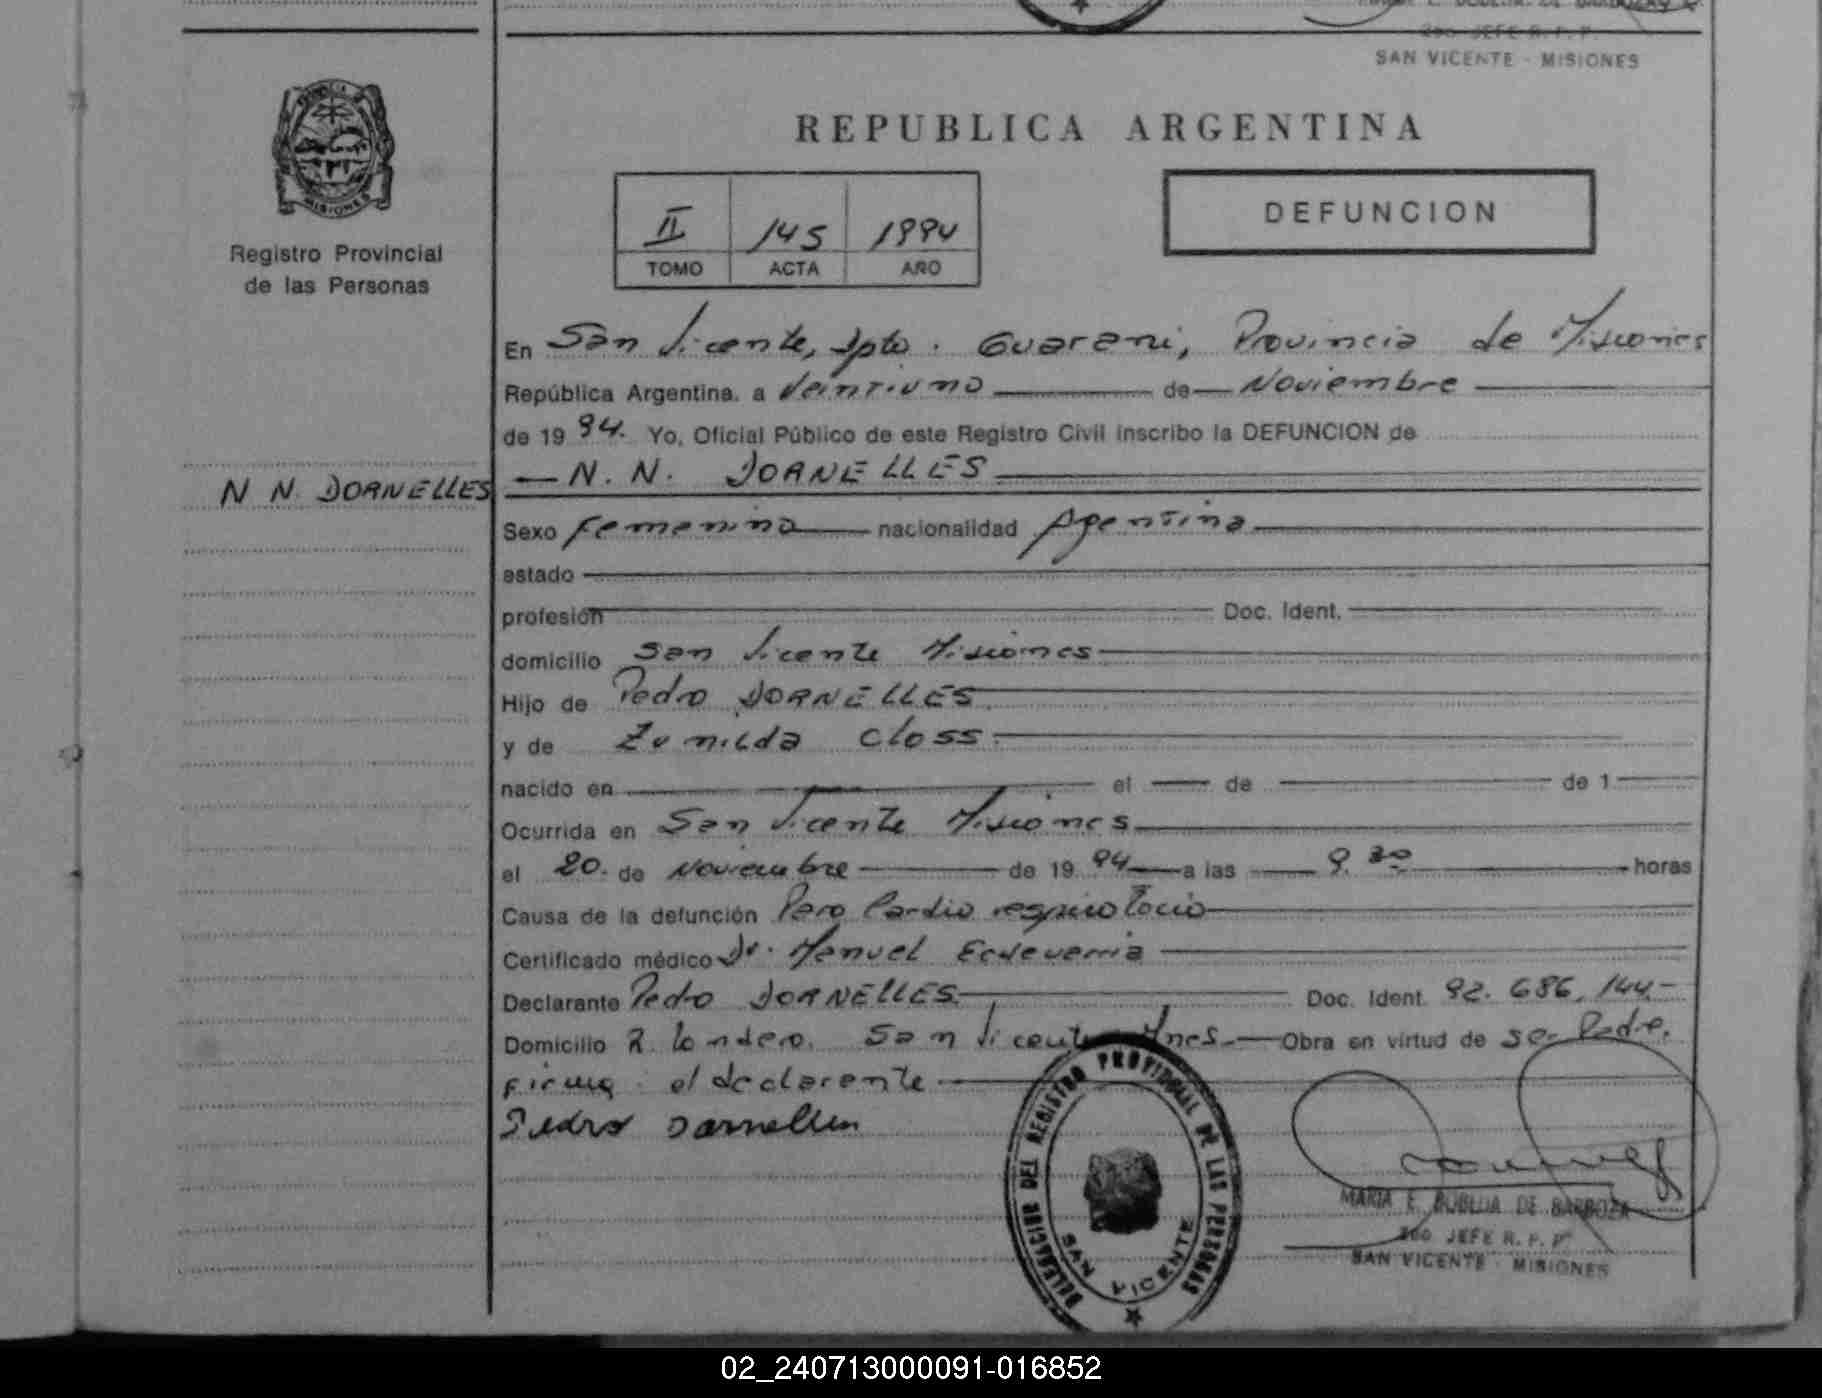 SAN VICENTE - MISIONES
PROVINCIA DE
MISIONES
Registro Provincial
de las Personas
REPUBLICA ARGENTINA
II 145 1994
TOMO ACTA AÑO
DEFUNCION
En San Vicente, Dpto. Guarani, Provincia de Misiones
República Argentina, a Veintiuno de Noviembre
de 1994. Yo, Oficial Público de este Registro Civil inscribo la DEFUNCION de
N N. DORNELLES
N. N. DORNELLES
Sexo femenino nacionalidad Agentina
estado
profesión Doc. Ident.
domicilio San Vicente Misiones
Hijo de Pedro DORNELLES
y de Zunilda Closs.
nacido en el de de 1
Ocurrida en San Vicente Misiones
el 20. de Noviembre de 1994 a las 9.30 horas
Causa de la defunción Paro Cardio respiratorio
Certificado médico Dr. Manuel Echeverria
Declarante Pedro DORNELLES. Doc. Ident. 92. 686. 144.-
Domicilio San Vicente Mnes. Obra en virtud de ser Padre.
Firma el declarante
Pedro Dornelles
DELEGACION DEL REGISTRO PROVINCIAL DE LAS PERSONAS
SAN VICENTE
MARIA E. BOBLDA DE BARBOZA
2do JEFE R. P. P.
SAN VICENTE - MISIONES
02_240713000091-016852